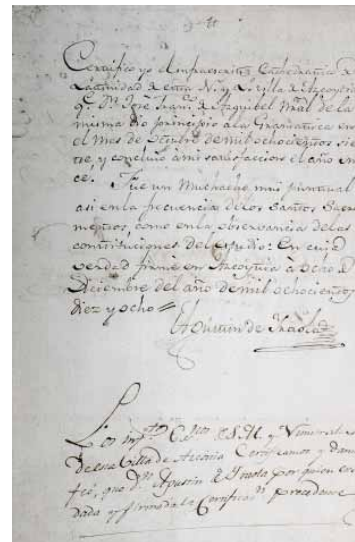 Certifico yó el infraescrito Cathedratico de
Latinidad de esta N. y L. villa de Azcoytia
q.e D.n José Fran.co de Azquibel Nral. de la
misma dio principio a la Gramatica en
el mes de Octubre de mil ochocientos sie-
te, y concluio a mi satisfaccion el año on-
cé. Fue un Muchacho mui puntual
asi en la frecuencia de los Santos Sacra
mentos, como en la observancia de las
constituciones del estudio: En cuia
verdad firmé en Azcoytia à ocho de
Diciembre del año de mil ochocientos
diez y ocho
Agustin de
Los S.M. y
de esta Villa de Certificamos y damos
feé, que D.n Agustin de por quien está
dada y firmada la Certificac.n precedente